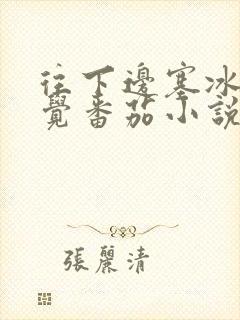 往下邊塞冰
覺番茄小說
張麗清